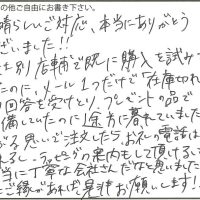 の他ご自由にお書き下さい。
晴らしいご対応、本当にありがとう
ざいました!!
別店舗で既に購入を試み
たのに、メール1つだけで「在庫切れ
回答を受けとり、プレゼントの品で
備していたのに途方に暮れていました
る思いで注文したら、お礼の電話は
れるし、ラッピングの案内もして頂けるし
当に丁寧な会社さんだなと思いました
ご縁があれば是非お願いします!